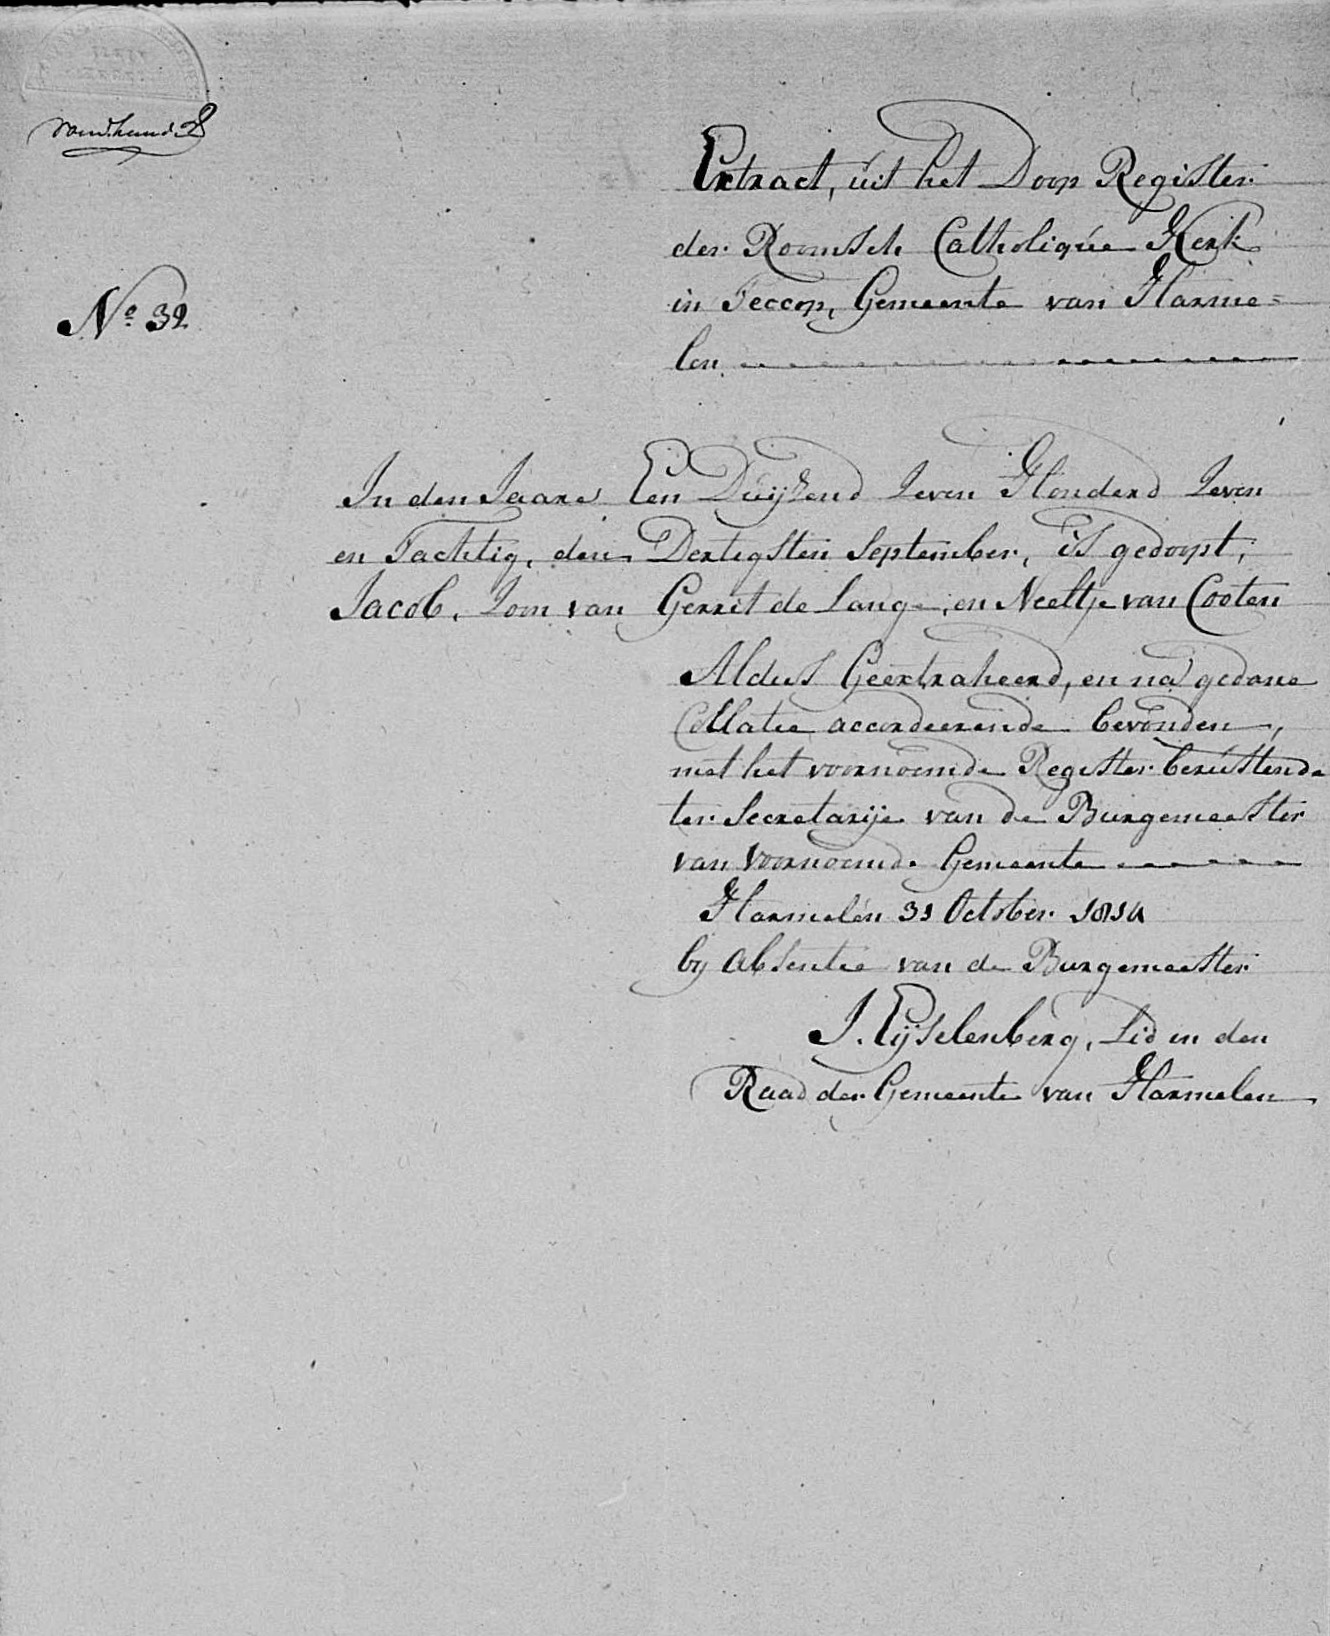 No. 32
Extract, uit het Doop Register
der Roomsch Catholique Kerk
in Teccop, Gemeente van Harme=
len
In den Jaare Een Duijzend Zeven Honderd Zeven
en Tachtig, den Dertigsten September, is gedoopt,
Jacob, Zoon van Gerrit de Lange, en Neeltje van Cooten
Aldus Geextraheerd, en na gedane
Collatie accordeerende bevonden,
met het voornoemde Register berustende
ter Secretarije van de Burgemeester
van Voornoemde Gemeente
Harmelen 31 October 1814
by absentie van de Burgemeester
J. Eijselenberg, Lid in den
Raad der Gemeente van Harmelen